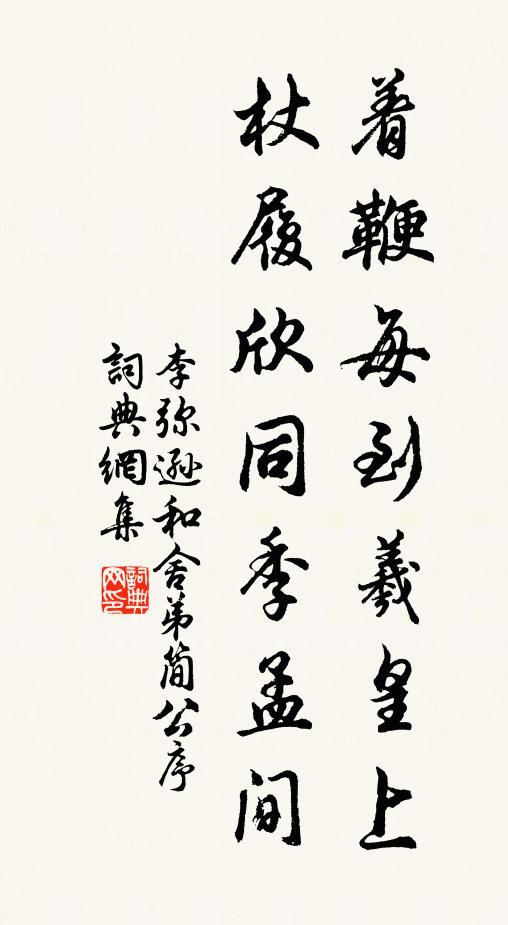 着鞭每到羲皇上
杖履欣同季孟间
李弥逊和舍弟简公序
詞典網集
詞典网印